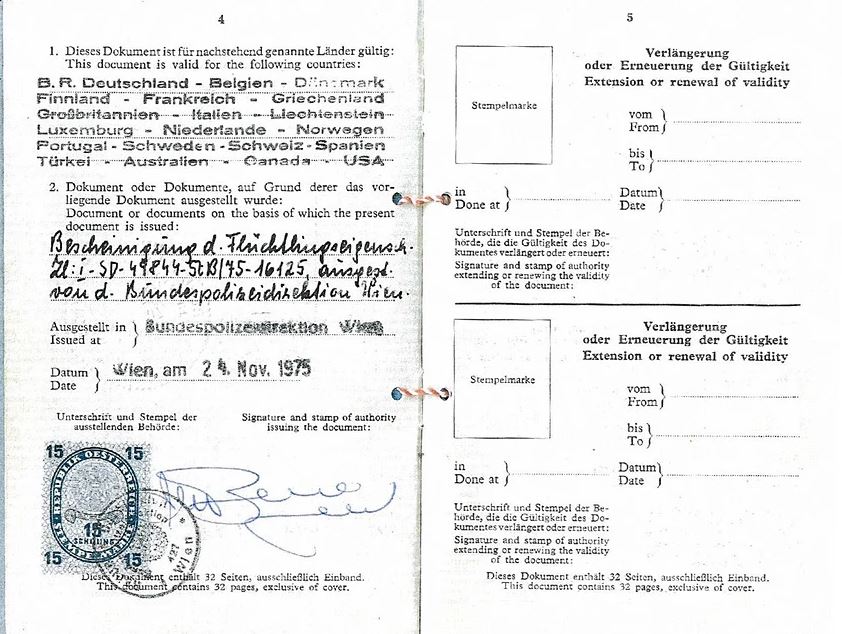 4
1. Dieses Dokument ist für nachstehend genannte Länder gültig:
This document is valid for the following countries:
B.R. Deutschland - Belgien - Dänemark
Finnland - Frankreich - Griechenland
Großbritannien - Italien - Liechtenstein
Luxemburg - Niederlande - Norwegen
Portugal - Schweden - Schweiz - Spanien
Türkei - Australien - Canada - USA
2. Dokument oder Dokumente, auf Grund derer das vor-
liegende Dokument ausgestellt wurde:
Document or documents on the basis of which the present
document is issued:
Bescheinigung d. Flüchtlingseigensch.
Zl: I-SD-49844-StB/75-16125, ausgest.
von d. Bundespolizeidirektion Wien.
Ausgestellt in
Issued at
Bundespolizeidirektion Wien
Datum
Date
Wien, am 24. Nov. 1975
Unterschrift und Stempel der
ausstellenden Behörde:
Signature and stamp of authority
issuing the document:
15 15
REPUBLIK OESTERREICH
15
SCHILLING
15 15
Wien
Dieses Dokument enthält 32 Seiten, ausschließlich Einband.
This document contains 32 pages, exclusive of cover.
5
Stempelmarke
Verlängerung
oder Erneuerung der Gültigkeit
Extension or renewal of validity
vom
From
bis
To
in
Done at
Datum
Date
Unterschrift und Stempel der Be-
hörde, die die Gültigkeit des Do-
kumentes verlängert oder erneuert:
Signature and stamp of authority
extending or renewing the validity
of the document:
Stempelmarke
Verlängerung
oder Erneuerung der Gültigkeit
Extension or renewal of validity
vom
From
bis
To
in
Done at
Datum
Date
Unterschrift und Stempel der Be-
hörde, die die Gültigkeit des Do-
kumentes verlängert oder erneuert:
Signature and stamp of authority
extending or renewing the validity
of the document:
Dieses Dokument enthält 32 Seiten, ausschließlich Einband.
This document contains 32 pages, exclusive of cover.